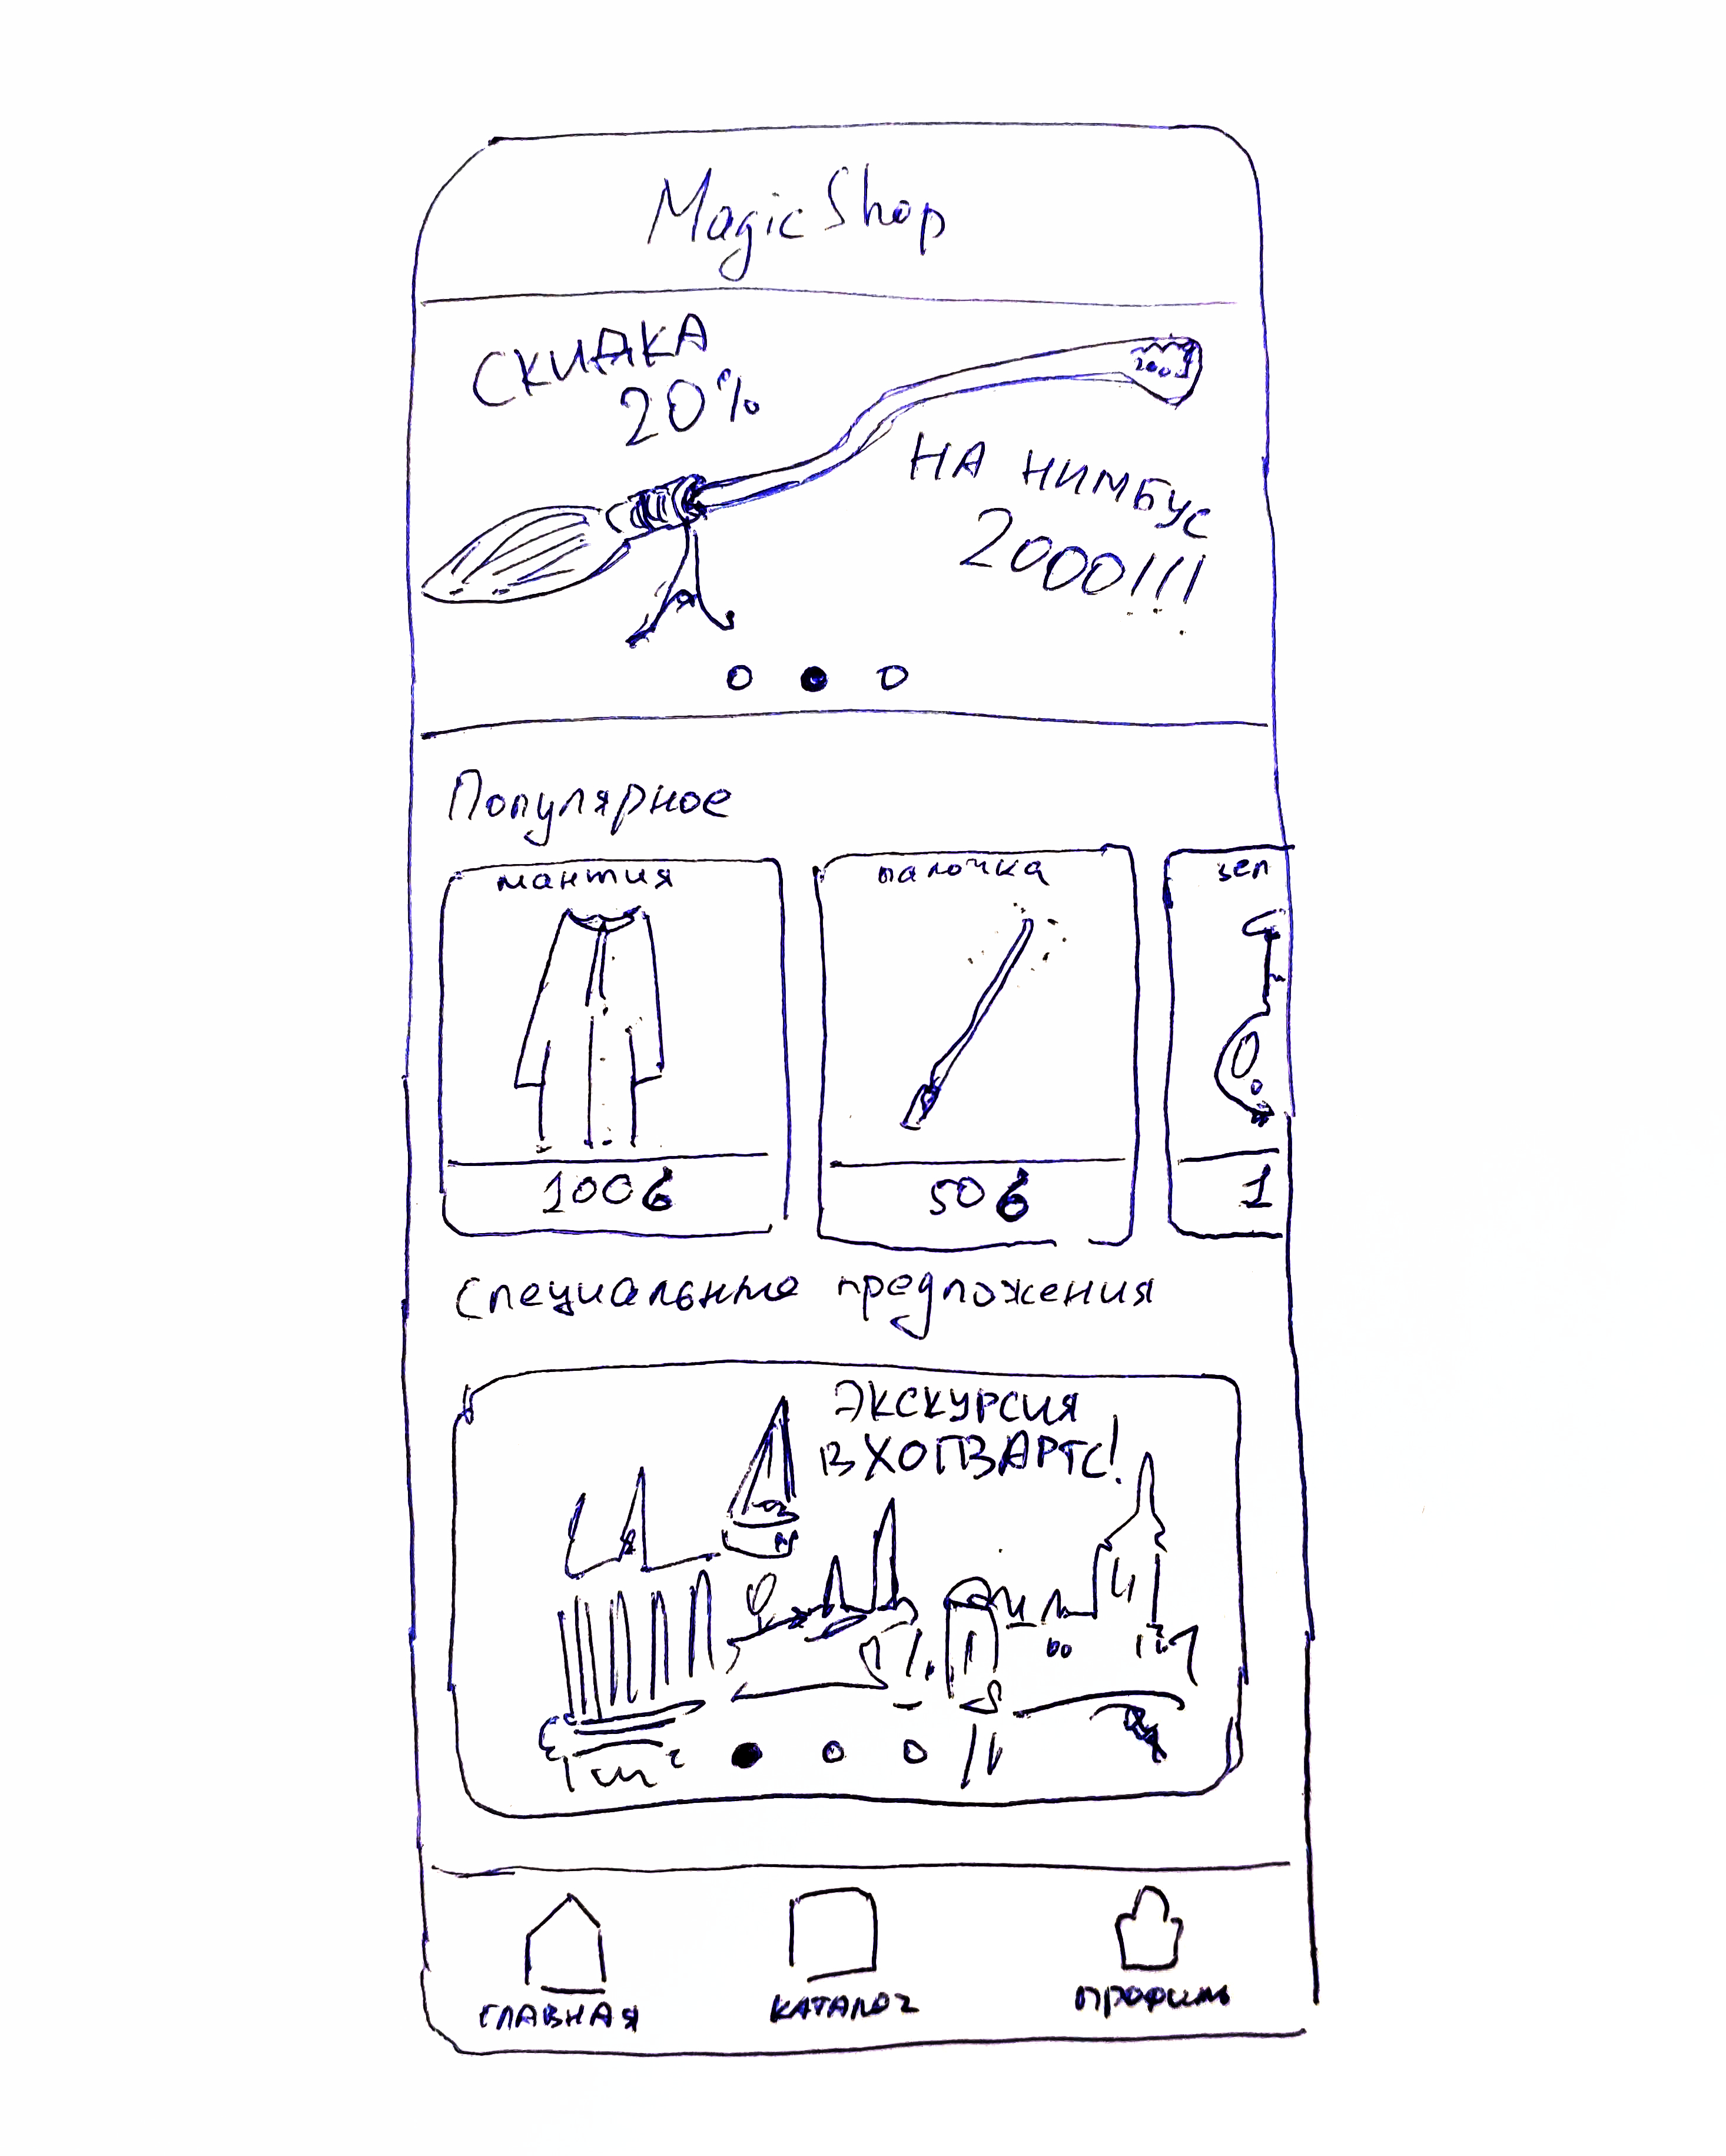 Magic Shop
СКИДКА
20%
2000
НА НИМБУС
2000!!!
Популярное
мантия
палочка
зел
100б
50б
1
Специальные предложения
ЭКСКУРСИЯ
В ХОГВАРТС!
ГЛАВНАЯ
КАТАЛОГ
профиль